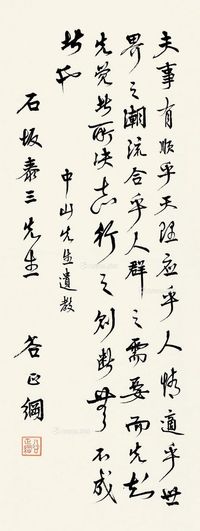 夫事有順乎天理應乎人情適乎世
界之潮流合乎人群之需要而先知
先覺者所決志行之則斷無不成
者也
中山先生遺教
石坂泰三先生
谷正綱